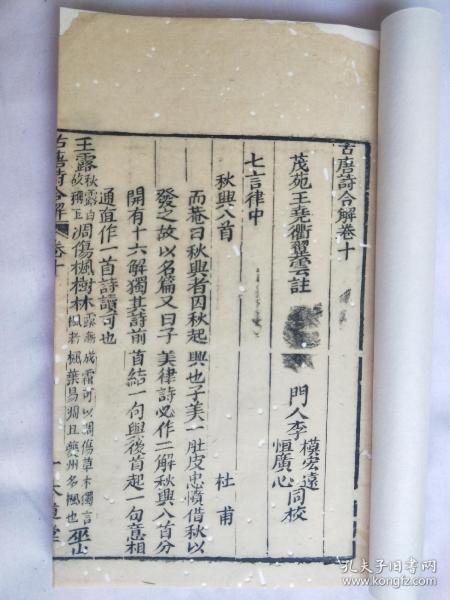 古唐詩合解卷十
茂苑王堯衢翼雲註
門人李
模宏遠
恒廣心
同校
七言律中
秋興八首
杜甫
而菴曰秋興者因秋起興也子美一肚皮忠憤借秋以
發之故以名篇又曰子美律詩必作二解秋興八首分
開有十六解獨其詩前首結一句與後首起一句意相
通直作一首詩讀可也
玉露
秋露白
故珮玉
凋傷楓樹林
露漸成霜可以凋傷草木獨言
楓者楓葉易凋且夔州多楓也
巫山
古唐詩合解
卷十
孔夫子旧书网